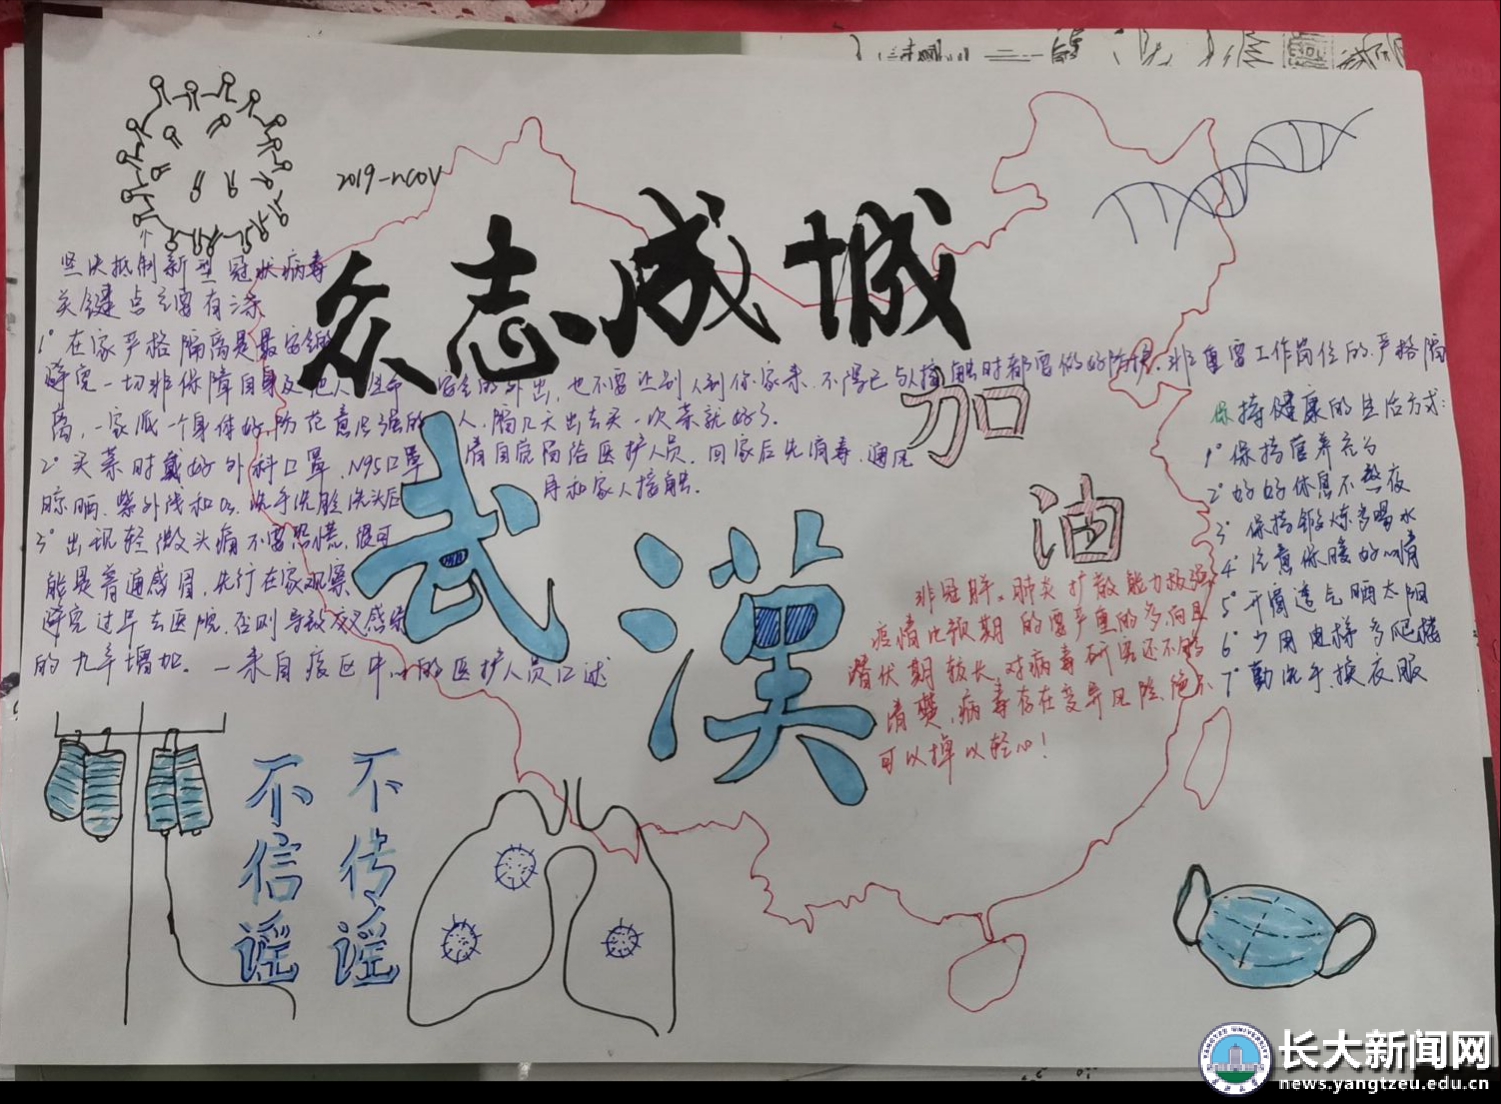 2019-nCOV
众志成城
坚决抵制新型冠状病毒
关键点主要有三条
1° 在家严格隔离是最安全的
避免一切非保障自身及他人生命安全的外出,也不要让别人到你家来,不得已与人接触时都要做好防护,非重要工作岗位的,严格隔
离,一家派一个身体好,防范意识强的人,隔几天出去买一次菜就好了.
2° 买菜时戴好外科口罩,N95口罩请自觉留给医护人员,回家后先消毒,通风
晾晒,紫外线和O₃,洗手洗脸洗头后再和家人接触.
3° 出现轻微头痛不要恐慌,很可
能是普通感冒,先行在家观察
避免过早去医院,否则导致交叉感染
的几率增加. 一来自疫区中心的医护人员口述
武漢
加油
保持健康的生活方式:
1° 保持营养充分
2° 好好休息不熬夜
3° 保持锻炼多喝水
4° 注意保暖好心情
5° 开窗透气晒太阳
6° 少用电梯多爬楼
7° 勤洗手、换衣服
肺炎扩散能力极强
疫情比预期的要严重的多,而且
潜伏期较长,对病毒研究还不够
清楚,病毒存在变异风险,绝不
可以掉以轻心!
不信谣
不传谣
长大新闻网
news.yangtzeu.edu.cn